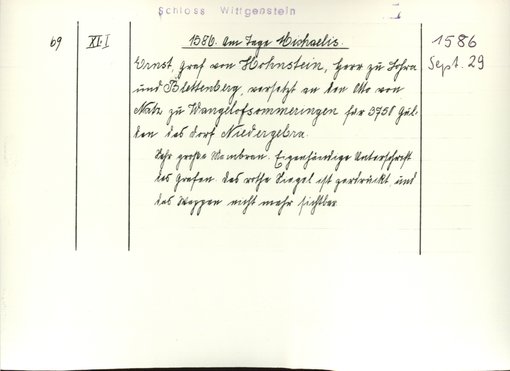 Schloss Wittgenstein
69 XI.I 1586. Am Tage Michaelis. 1586
Ernst, Graf von Hohnstein, Herr zu Lohra Sept. 29
und Klettenberg, versetzt an den Otto von
zu Wangelofsömmeringen für 3750 Gul-
den das Dorf Niedergebra.
Sehr große Membran. Eigenhändige Unterschrift
des Grafen. Das rothe Siegel ist zerdrückt und
das Wappen nicht mehr sichtbar